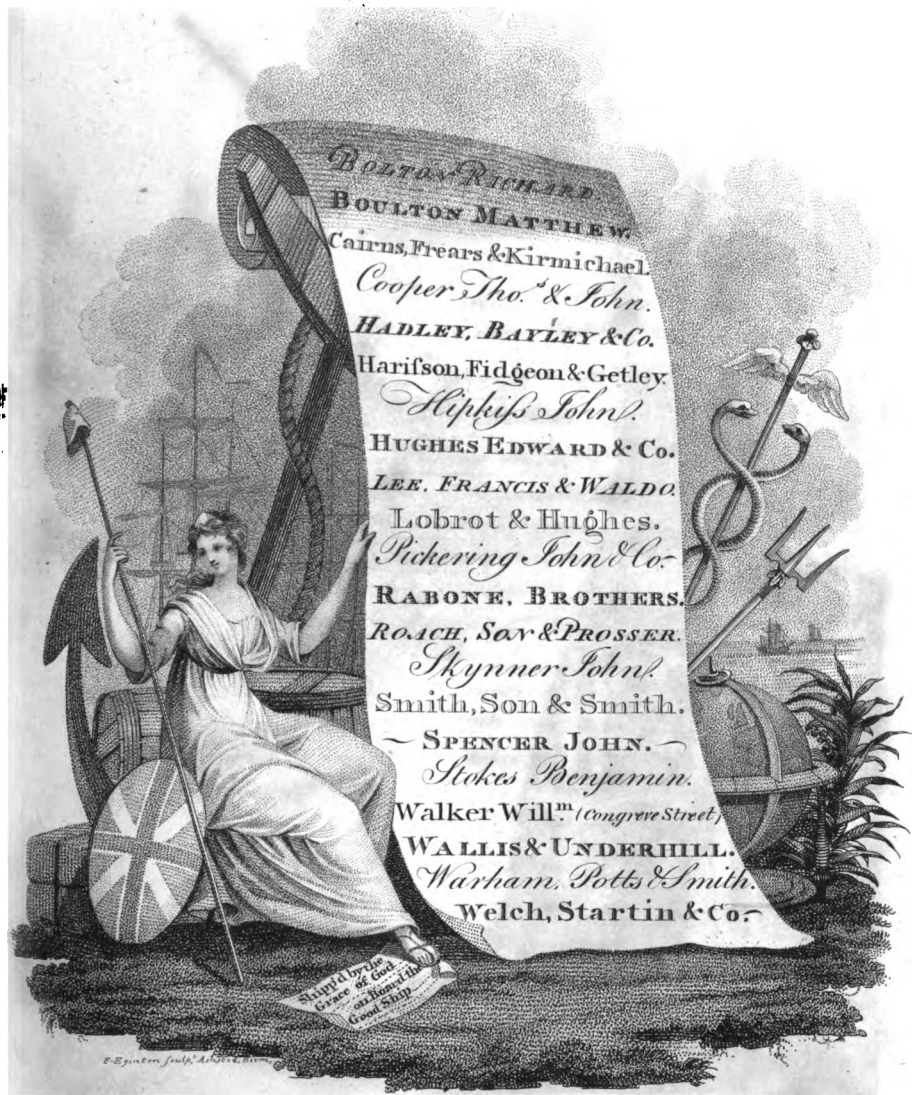 BOLTON RICHARD
BOULTON MATTHEW.
Cairns, Frears & Kirmichael.
Cooper, Tho.ˢ & John.
HADLEY, BAYLEY & Co.
Hariſson, Fidgeon & Getley.
Hipkiſs John.
HUGHES EDWARD & Co.
LEE, FRANCIS & WALDO.
Lobrot & Hughes.
Pickering John & Co.
RABONE, BROTHERS.
ROACH, SON & PROSSER.
Skynner John.
Smith, Son & Smith.
SPENCER JOHN.
Stokes Benjamin.
Walker Will.ᵐ (Congreve Street)
WALLIS & UNDERHILL.
Warham, Potts & Smith.
Welch, Startin & Co.
Shipp'd by the
Grace of God
on Board the
Good Ship
F. Eginton ſculp.ᵗ Ashsted, Birm